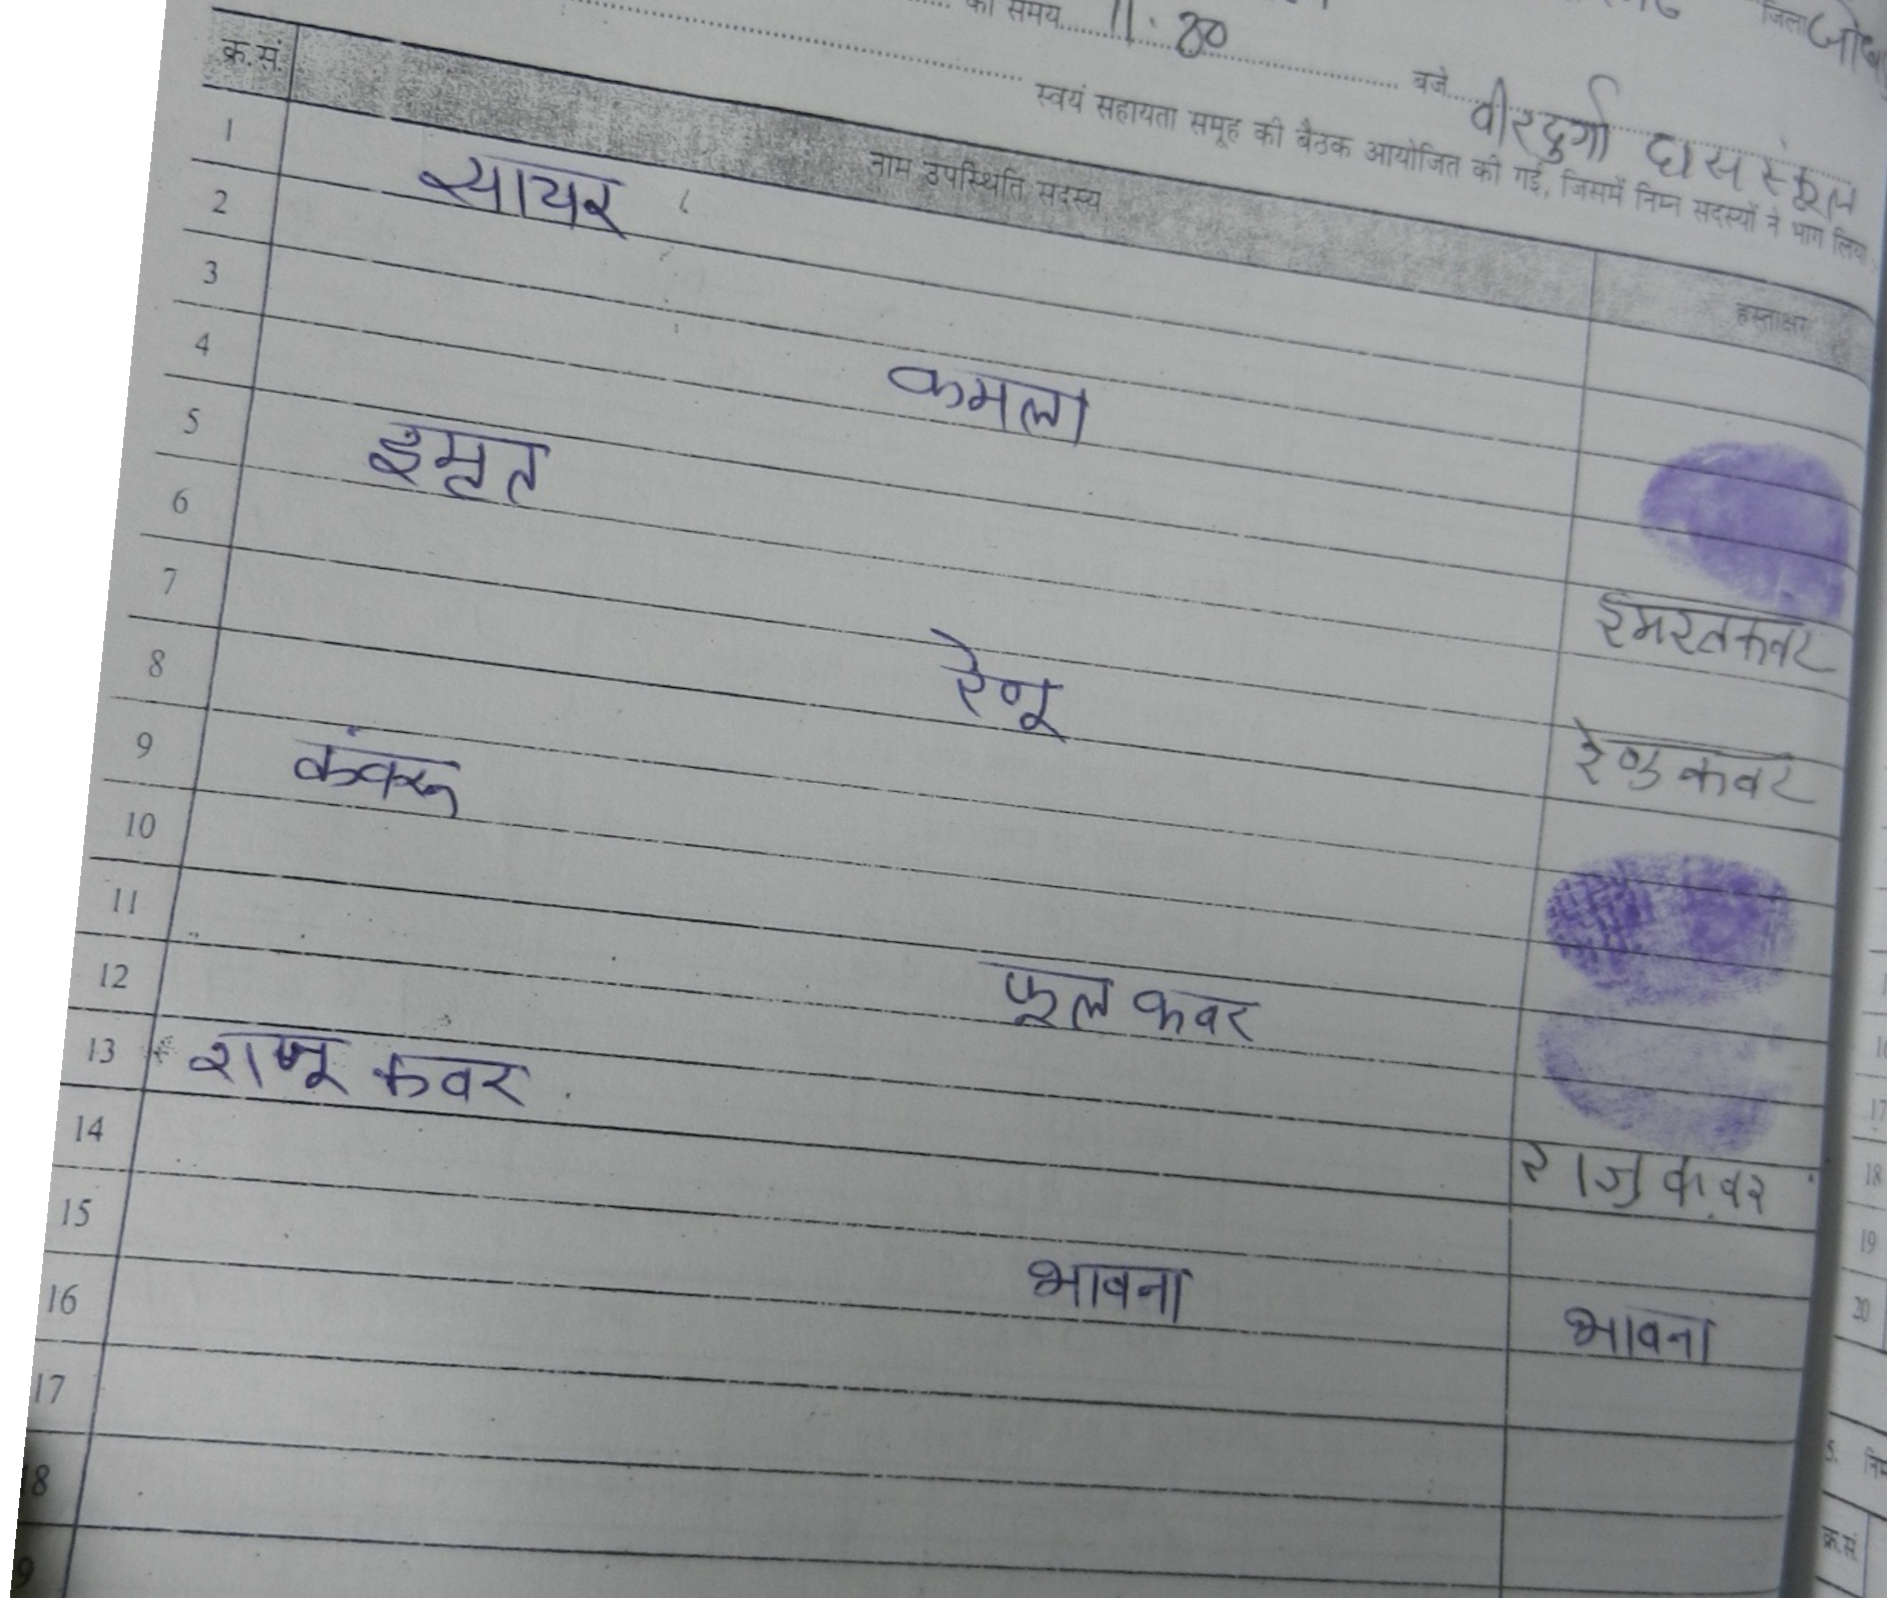 का समय 11.30 बजे जिला
वीरदुर्गा दास स्कूल
स्वयं सहायता समूह की बैठक आयोजित की गई, जिसमें निम्न सदस्यों ने भाग लिया
क्र.सं. नाम उपस्थिति सदस्य हस्ताक्षर
1 सायर
2
3
4 कमला
5 इमृत इमरतकवर
6
7 रेणू रेणु कवर
8
9
10
11 फूल कवर
12
13 राजू कवर राजु कवर
14
15 भावना भावना
16
17
18
19
20
5.
क्र.सं.